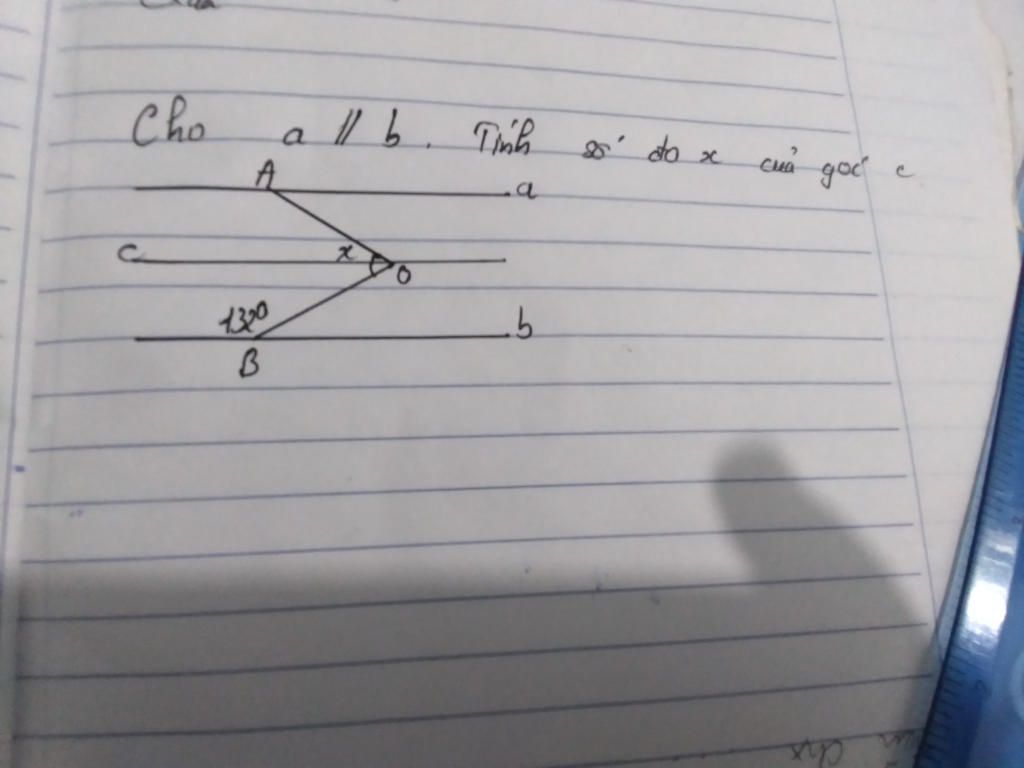 Cho a // b. Tính số đo x của góc c
A
a
c
x
O
132⁰
b
B